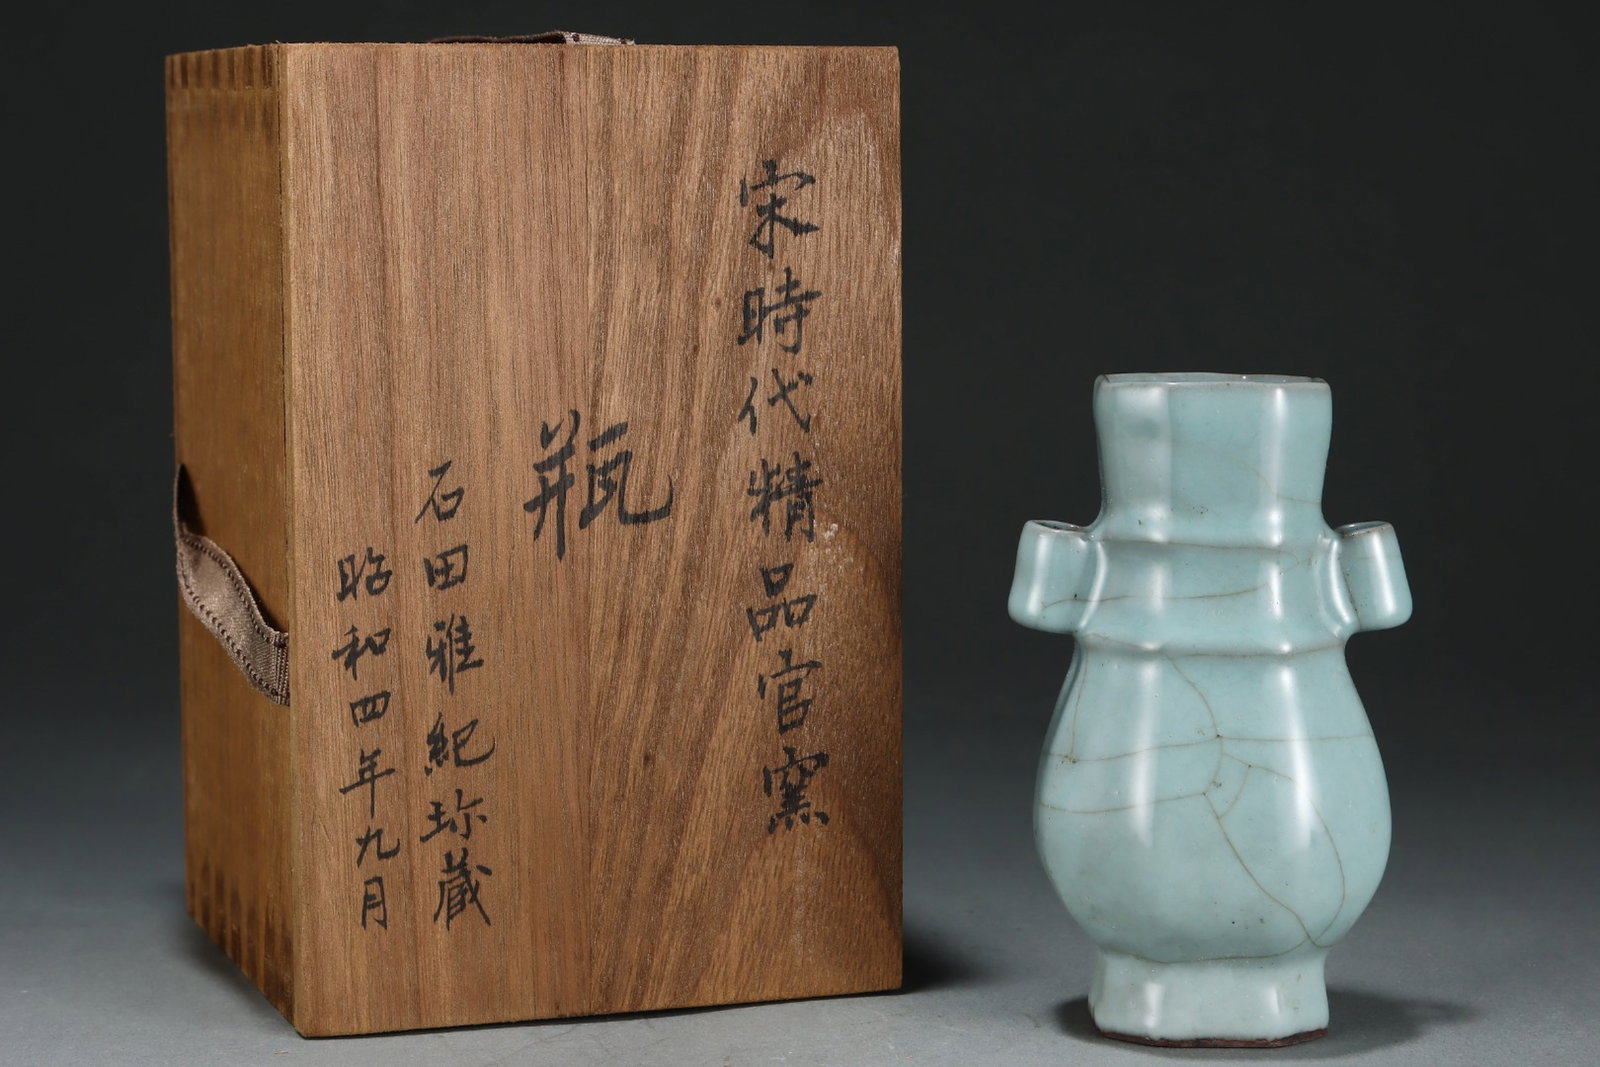 宋時代精品官窯
瓶
石田雅紀珎蔵
昭和四年九月